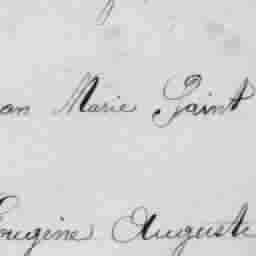 an Marie Saint
Eugène Auguste